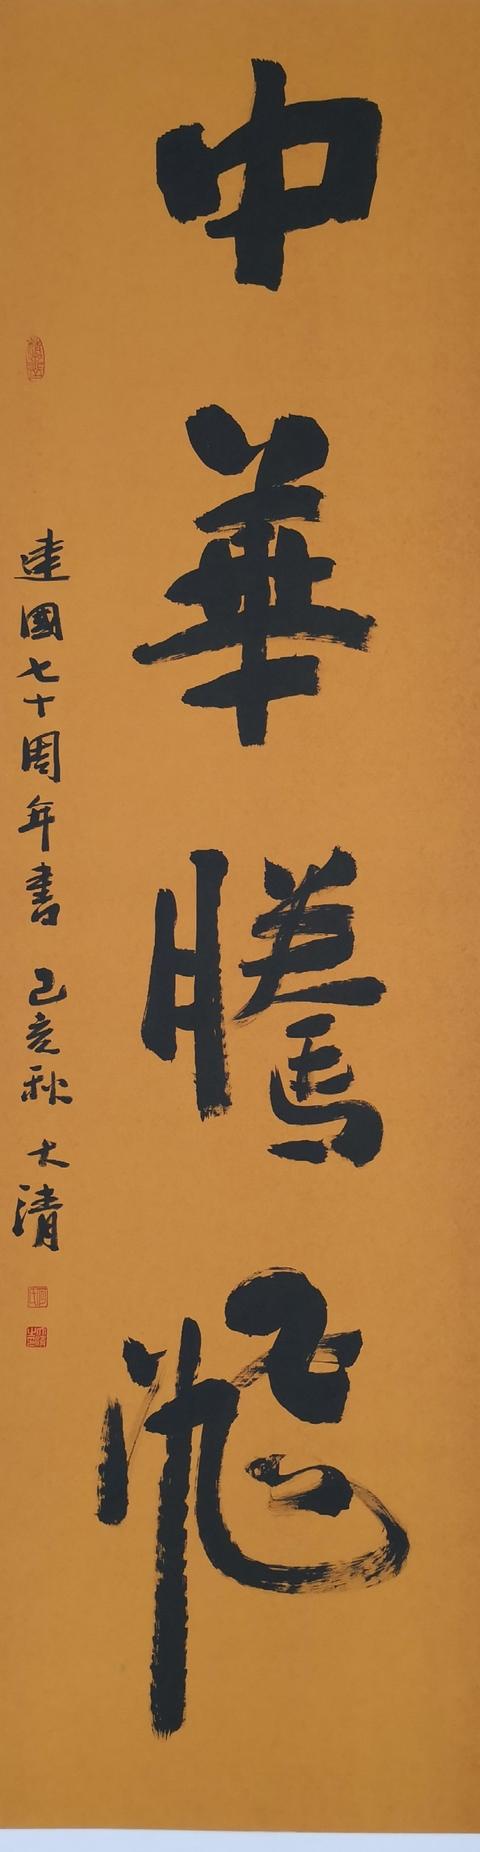 中華騰飛
建國七十周年書 己亥秋 大清